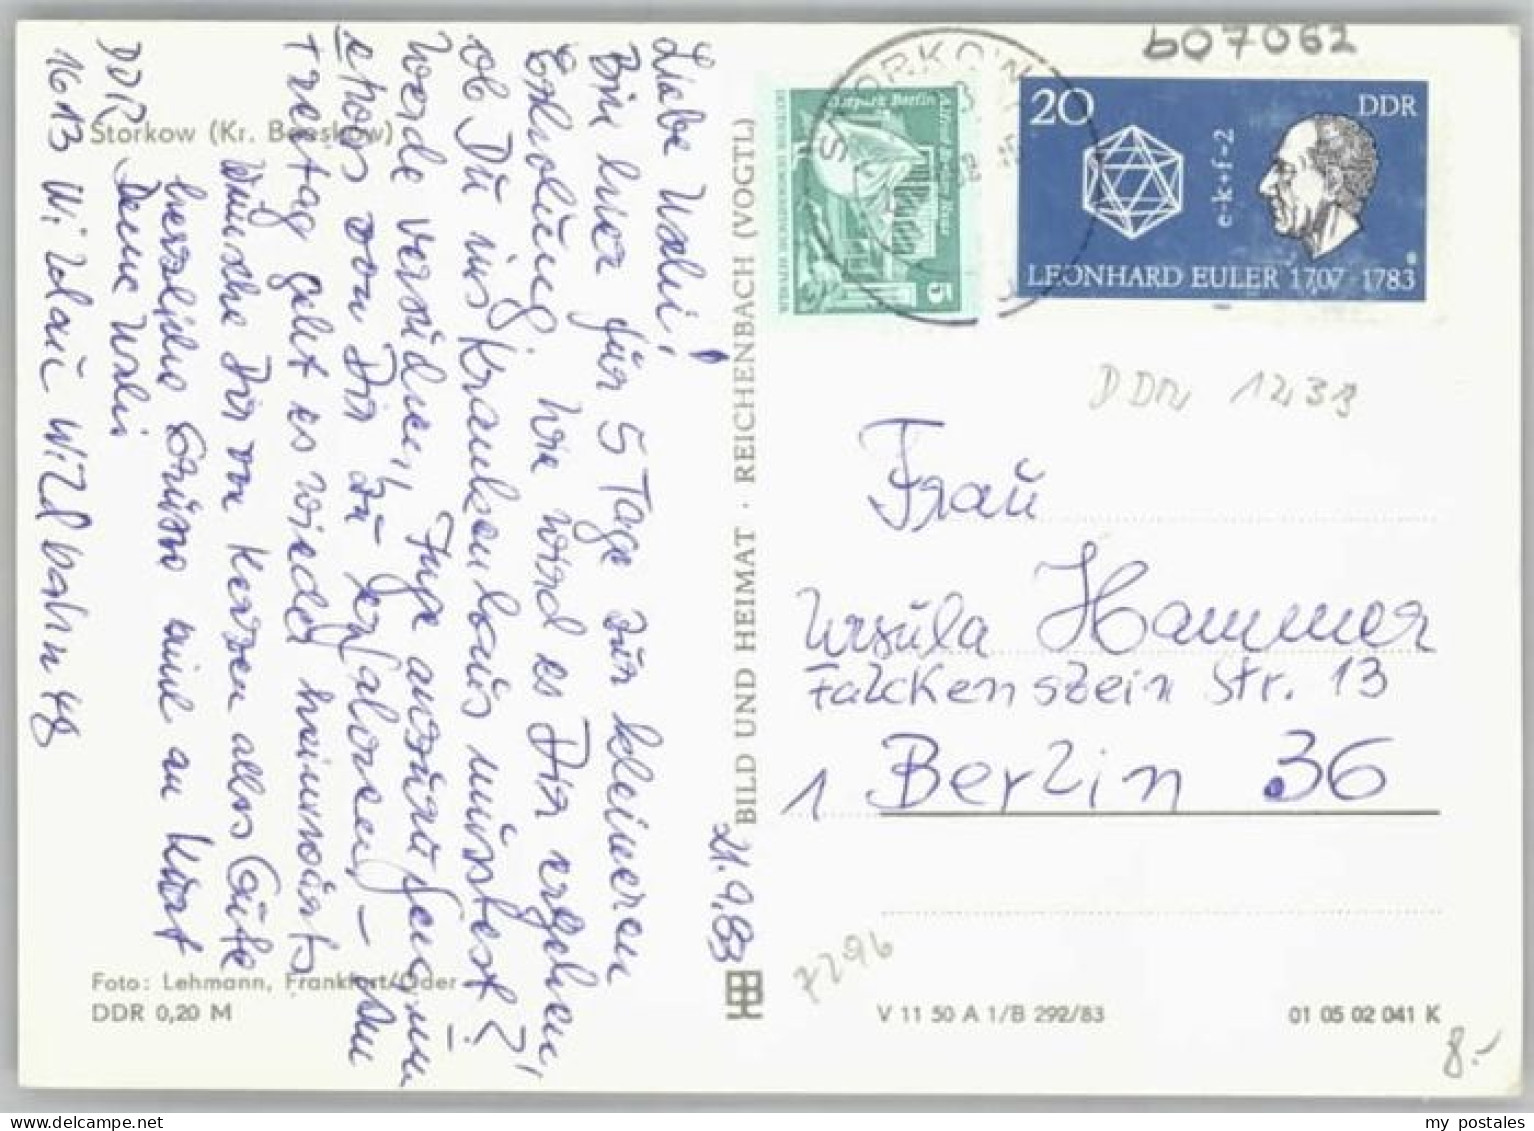 607062
STORKOW
Ostpark Berlin Alfred-Brehm-Haus
5
20 DDR
e-k+f=2
LEONHARD EULER 1707-1783
Storkow (Kr. Beeskow)
Liebe Uschi!
Bin hier für 5 Tage zur kleineren
Erholung. Wie wird es Dir ergehen,
ob Du ins Krankenhaus müsstest?
Werde versuchen,
etwas von Dir zu erfahren. – Am
Freitag geht es wieder heimwärts.
Wünsche Dir von Herzen alles Gute
herzliche Grüsse auch an Kurt
Deine
DDR
1613 Wildau Wildbahn 48
21.9.83
BILD UND HEIMAT · REICHENBACH (VOGTL)
DDR 1233
Frau
Ursula Hammer
Falckenstein Str. 13
1 Berlin 36
7296
Foto: Lehmann, Frankfurt/Oder
DDR 0,20 M
V 11 50 A 1/B 292/83
01 05 02 041 K
8.-
my postales